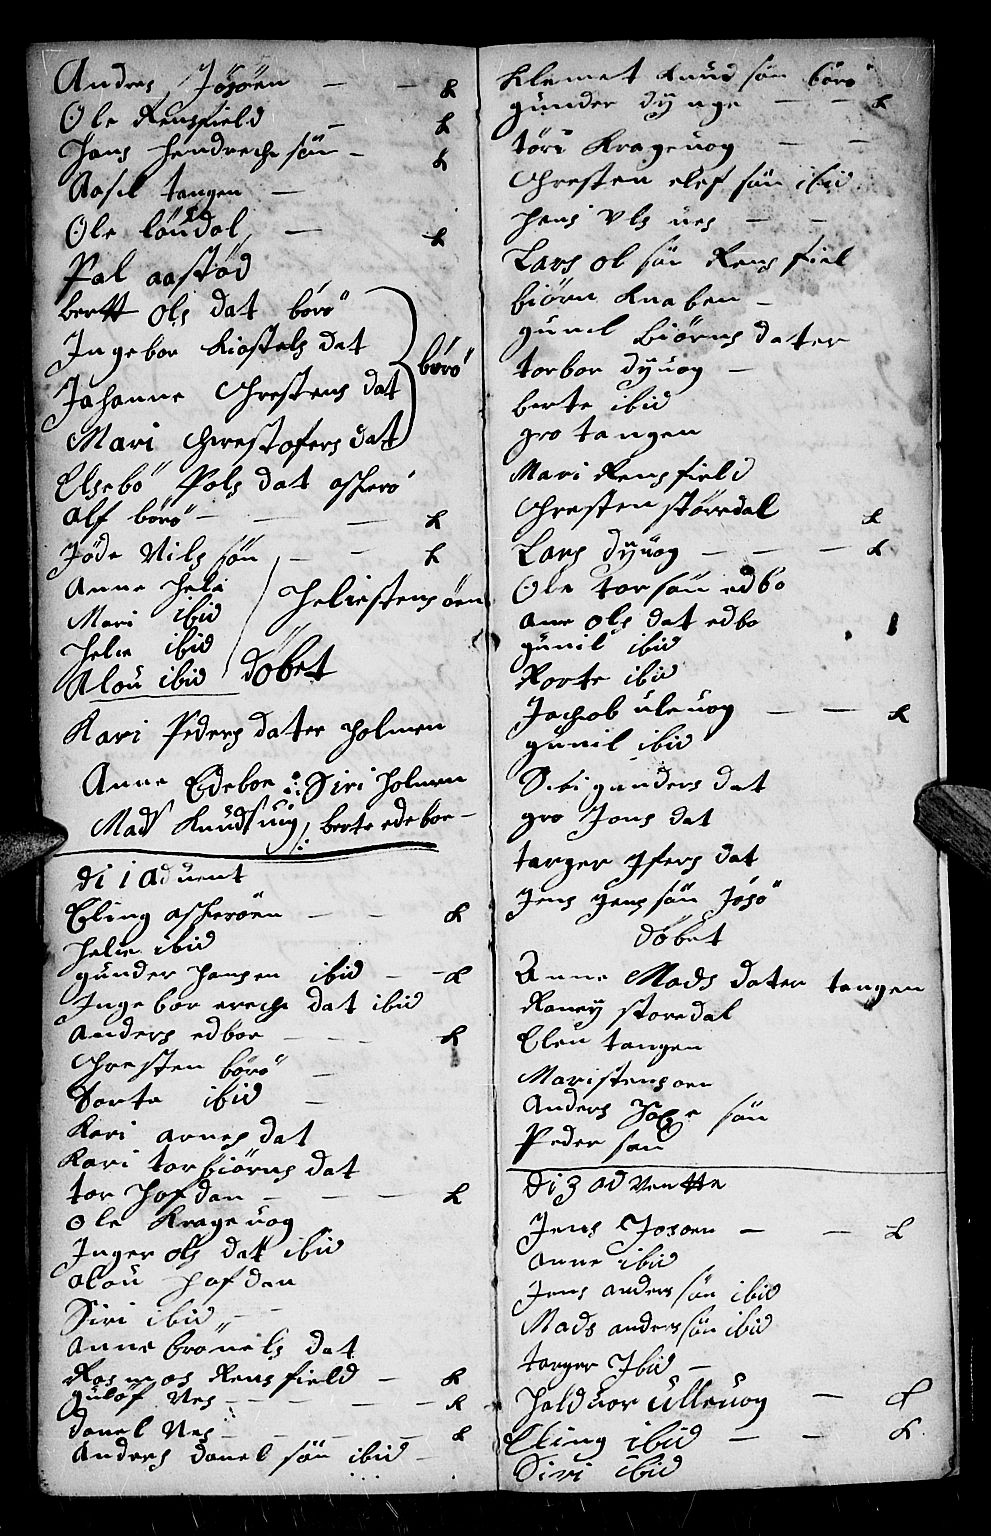 Anders Jösöen — — k
Ole Rensfield — k
Hans Hendrechs sön — k
Aasil tangen —
Ole löudal — k
Pal aastöd
bertt Ols dat börö
Ingebor kiöstels dat
Johanne Chrestens dat börö
Mari Chrestofers dat
Elsebö Pols dat askerö
alf börö — — — k
Jöde Nils sön — — k
Anne Hele
Mari ibid Heliestensöen
Helie ibid
Alou ibid döbet
Kari Peders dater Holmen
Anne Edeboe Siri Holmen
Mads Knudsuig berte edeboe —
di i aduent
Eling askeröen — — k
Helie ibid
gunder Hansen ibid — — k
Ingebor ereche dat ibid
Anders edboe — — — k
Chresten börö —
Dorte ibid —
Kari arnes dat
Kari torbiörns dat
tor Hofdan — — — k
Ole Krageuog
Inger ols datt ibid
alou Hofdan
Siri ibid —
Anne brönels dat
Rasmos Rensfield — k
guløf Nes — — — — k
danel Nes — — — k
Anders danel sön ibid —
Klemet Knud sön börö
gunder dynge — — k
töri Krageuog — —
Chresten elef sön ibid
Hans Vls ues — —
Lars ol sön Rensfiel
biörn Knaben —
gunil biörns dater
torbor dyuog —
berte ibid
gro tangen
Mari Rensfield
Chresten störedal k
Lars dyuog — — — k
Ole torsön edbo
ane Ols dat edbo
gunil ibid
Dorte ibid
Jachob uleuog — — k
gunil ibid
Siri gunders dat
gro Jons dat
targer Jfers dat
Jens Jens sön Jösö
döbet
Anne Mads dater tangen
Roney storedal
Elen tangen
Mari stensoen
Anders sön
Peder san
di 3 aduentte
Jens Josoen — — k
Anne ibid
Jens anders sön ibid
Mads anders sön ibid
targer Jbid —
Halduor Ulleuog — k
Eling ibid — — k
Siri ibid